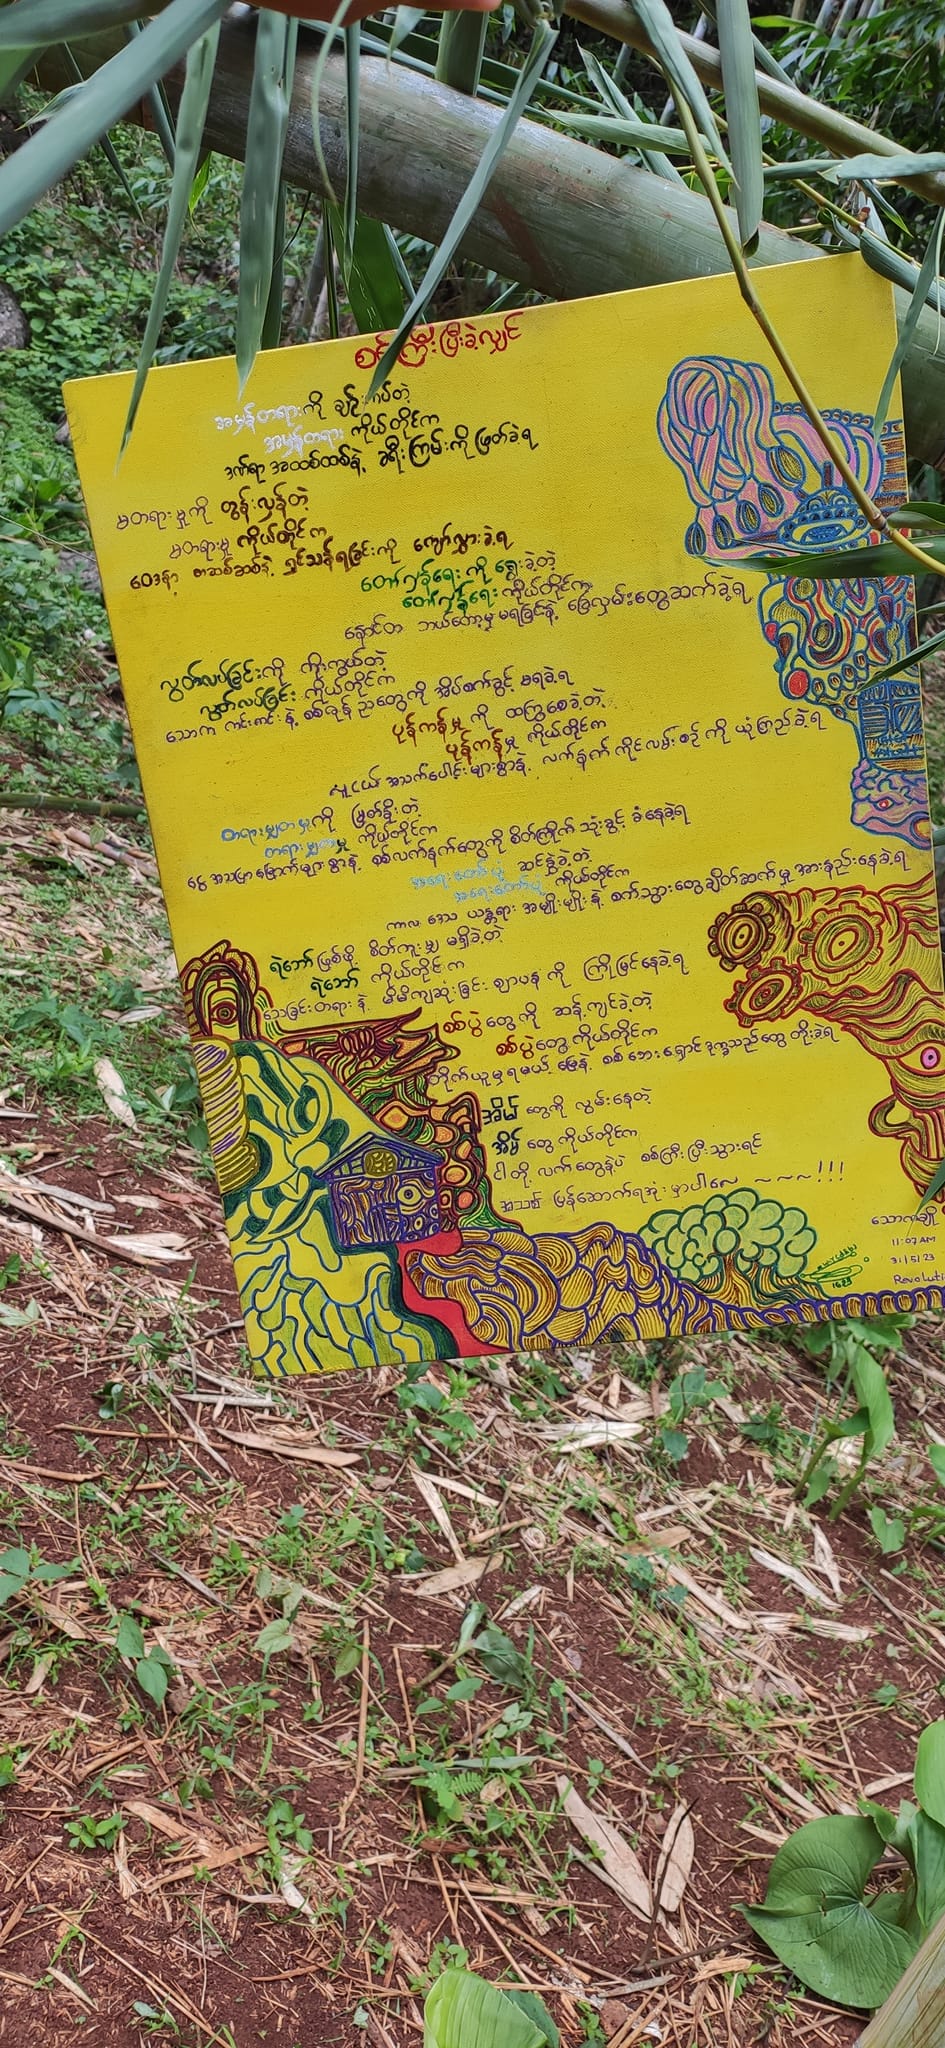 စစ်ကြီးပြီးခဲ့လျှင်
အမှန်တရားကို ချဉ်းကပ်တဲ့
အမှန်တရား ကိုယ်တိုင်က
ဒဏ်ရာ အထပ်ထပ်နဲ့ ခရီးကြမ်းကို ဖြတ်ခဲ့ရ
မတရားမှုကို တွန်းလှန်တဲ့
မတရားမှု ကိုယ်တိုင်က
ဝေဒနာ အဆစ်ဆစ်နဲ့ ရှင်သန်ရခြင်းကို ကျော်လွှားခဲ့ရ
တော်လှန်ရေး ကို ရွေးခဲ့တဲ့
တော်လှန်ရေး ကိုယ်တိုင်က
နောင်တ ဘယ်တော့မှ မရခြင်းနဲ့ ခြေလှမ်းတွေဆက်ခဲ့ရ
လွတ်လပ်ခြင်းကို ကိုးကွယ်တဲ့
လွတ်လပ်ခြင်း ကိုယ်တိုင်က
သောက ကင်းကင်းနဲ့ စစ်မှန် ညတွေကို အိပ်စက်ခွင့် မရခဲ့ရ
ပုန်ကန်မှု ကို ထကြွစေခဲ့တဲ့
ပုန်ကန်မှု ကိုယ်တိုင်က
လူငယ် အသက်ပေါင်းများစွာနဲ့ လက်နက် ကိုင်လမ်းစဉ် ကို ယုံကြည်ခဲ့ရ
တရားမျှတမှုကို မြတ်နိုးတဲ့
တရားမျှတမှု ကိုယ်တိုင်က
ငွေ အသပြာ မြောက်များစွာနဲ့ စစ်လက်နက်တွေကို စိတ်ကြိုက် သုံးခွင့် ခံနေခဲ့ရ
အရေးတော်ပုံ ဆင်နွှဲခဲ့တဲ့
အရေးတော်ပုံ ကိုယ်တိုင်က
ကာလ ဒေသ ယန္တရား အမျိုးမျိုး နဲ့ စက်သွားတွေ ချိတ်ဆက်မှု အားနည်းနေခဲ့ရ
ရဲဘော် ဖြစ်ဖို့ စိတ်ကူးမျှ မရှိခဲ့တဲ့
ရဲဘော် ကိုယ်တိုင်က
သေခြင်းတရား နဲ့ မိမိကျဆုံးခြင်း ဈာပန ကို ကြိုမြင်နေခဲ့ရ
စစ်ပွဲ တွေကို ဆန့်ကျင်ခဲ့တဲ့
စစ်ပွဲ တွေ ကိုယ်တိုင်က
တိုက်ယူမှ ရမယ့် မြေနဲ့ စစ် ဘေး ရှောင် ဒုက္ခသည်တွေ တိုးခဲ့ရ
အိမ် တွေကို လွမ်းနေတဲ့
အိမ် တွေ ကိုယ်တိုင်က
ငါတို့ လက်တွေနဲ့ပဲ စစ်ကြီး ပြီးသွားရင်
အသစ် ပြန်ဆောက်ရအုံးမှာပါလေ ~ ~ ~ !!!
သောကချို
11:07 AM
31/5/23